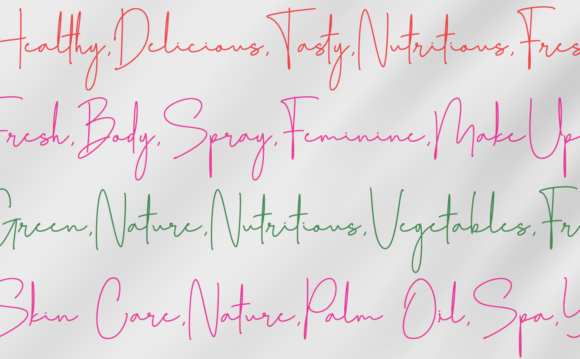 Healthy, Delicious, Tasty, Nutritious, Fres
Fresh, Body, Spray, Feminine, Make Up
Green, Nature, Nutritious, Vegetables, Fr
Skin Care, Nature, Palm Oil, Spa,